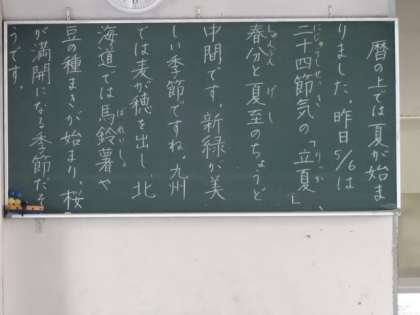 暦の上では夏が始ま
りました。昨日5/6は
二十四節気の「立夏」、
春分と夏至のちょうど
中間です。新緑が美
しい季節ですね。九州
では麦が穂を出し、北
海道では馬鈴薯や
豆の種まきが始まり、桜
が満開になる季節だそ
うです。